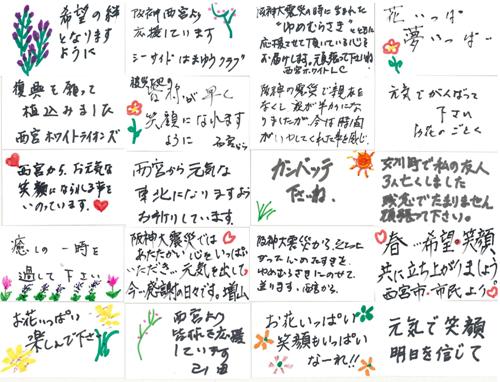 希望の絆
となります
ように
阪神西宮より
応援しています
シーサイドはまゆうクラブ
阪神大震災の時に生まれた
"ゆめむらさき"とともに
応援させて頂いている心を
お届けします。頑張って下さいね
西宮ホワイトLC
花いっぱい
夢いっぱい
復興を願って
植込みました
西宮ホワイトライオンズ
早く
笑顔になれます
ように
西宮から
阪神の震災で親友を
なくし
ましたが、今は時間が
元気でがんばって
下さい
お花のごとく
西宮から、お元気な
笑顔になられる事を
いのっています。
西宮から元気な
東北になりますよう
お祈りしています。
ガンバッテ
下さいね。
女川町で私の友人
3人亡くしました
残念でたまりません
頑張って下さい。
癒しの一時を
過して下さい
阪神大震災では
あたたかい心をいっぱい
いただき 元気を出して
今、感謝の日々です。増山
阪神大震災から立上
ゆめむらさきにのせて
送ります。西宮から。
春…希望・笑顔
共に立ち上がりましょう
西宮市・市民より
お花いっぱい
楽しんで下さい
西宮より
皆様を応援
しています
お花いっぱい
笑顔もいっぱい
なーれ!!
元気で笑顔
明日を信じて